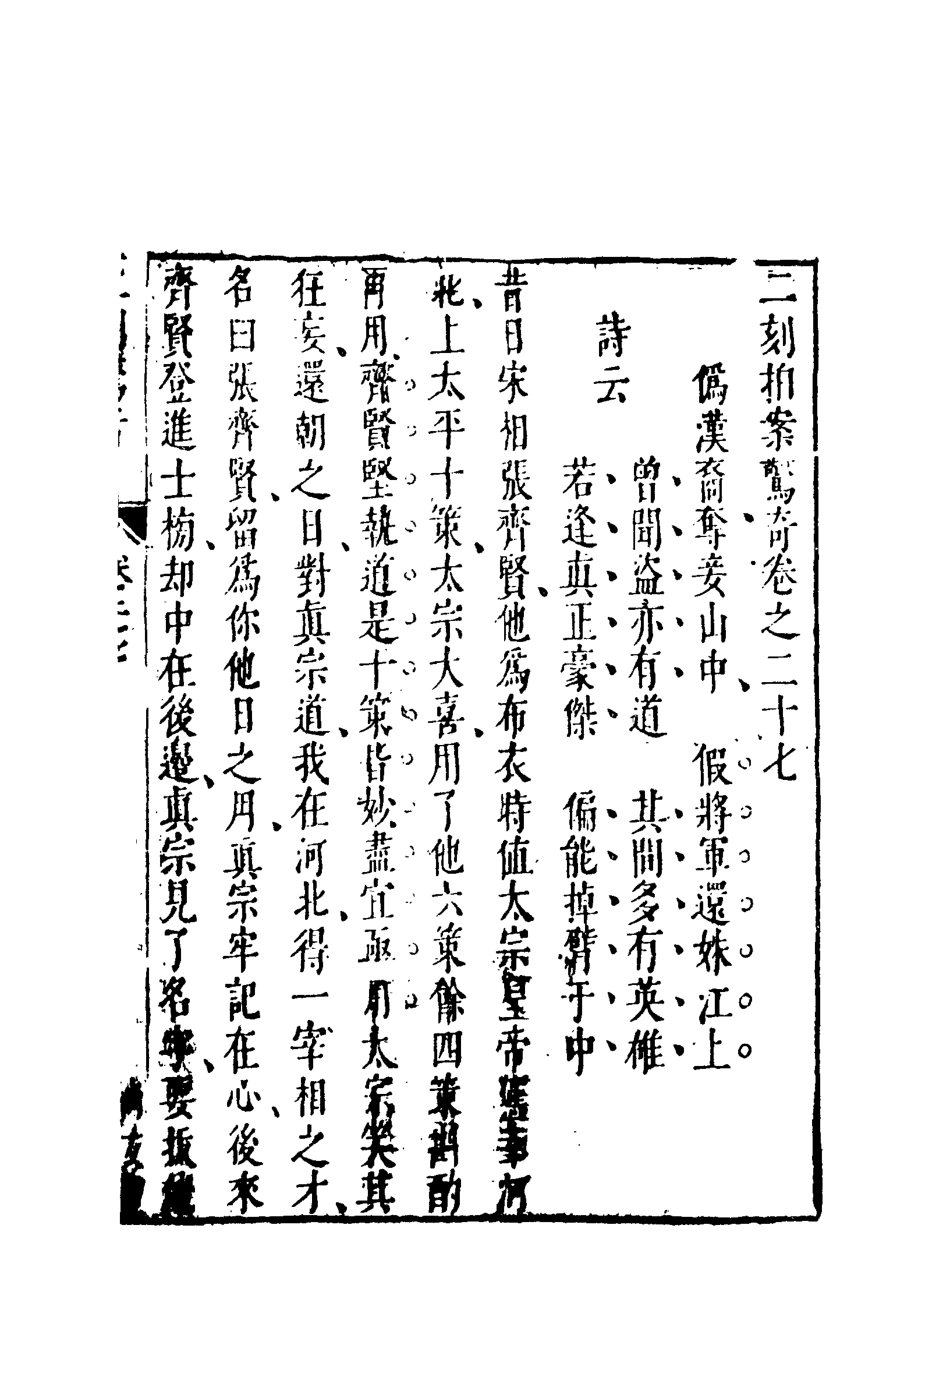 二刻拍案驚奇卷之二十七
僞漢裔奪妾山中　假將軍還姝江上
詩云
曾聞盜亦有道　其間多有英雄
若逢真正豪傑　偏能掉臂于中
昔日宋相張齊賢他爲布衣時值太宗皇帝駕幸河
北上太平十策太宗大喜用了他六策餘四策斟酌
再用齊賢堅執道是十策皆妙盡宜亟用太宗笑其
狂妄還朝之日對真宗道我在河北得一宰相之才
名曰張齊賢留爲你他日之用真宗牢記在心後來
齊賢登進士榜却中在後邊真宗見了名字要拔
卷二七